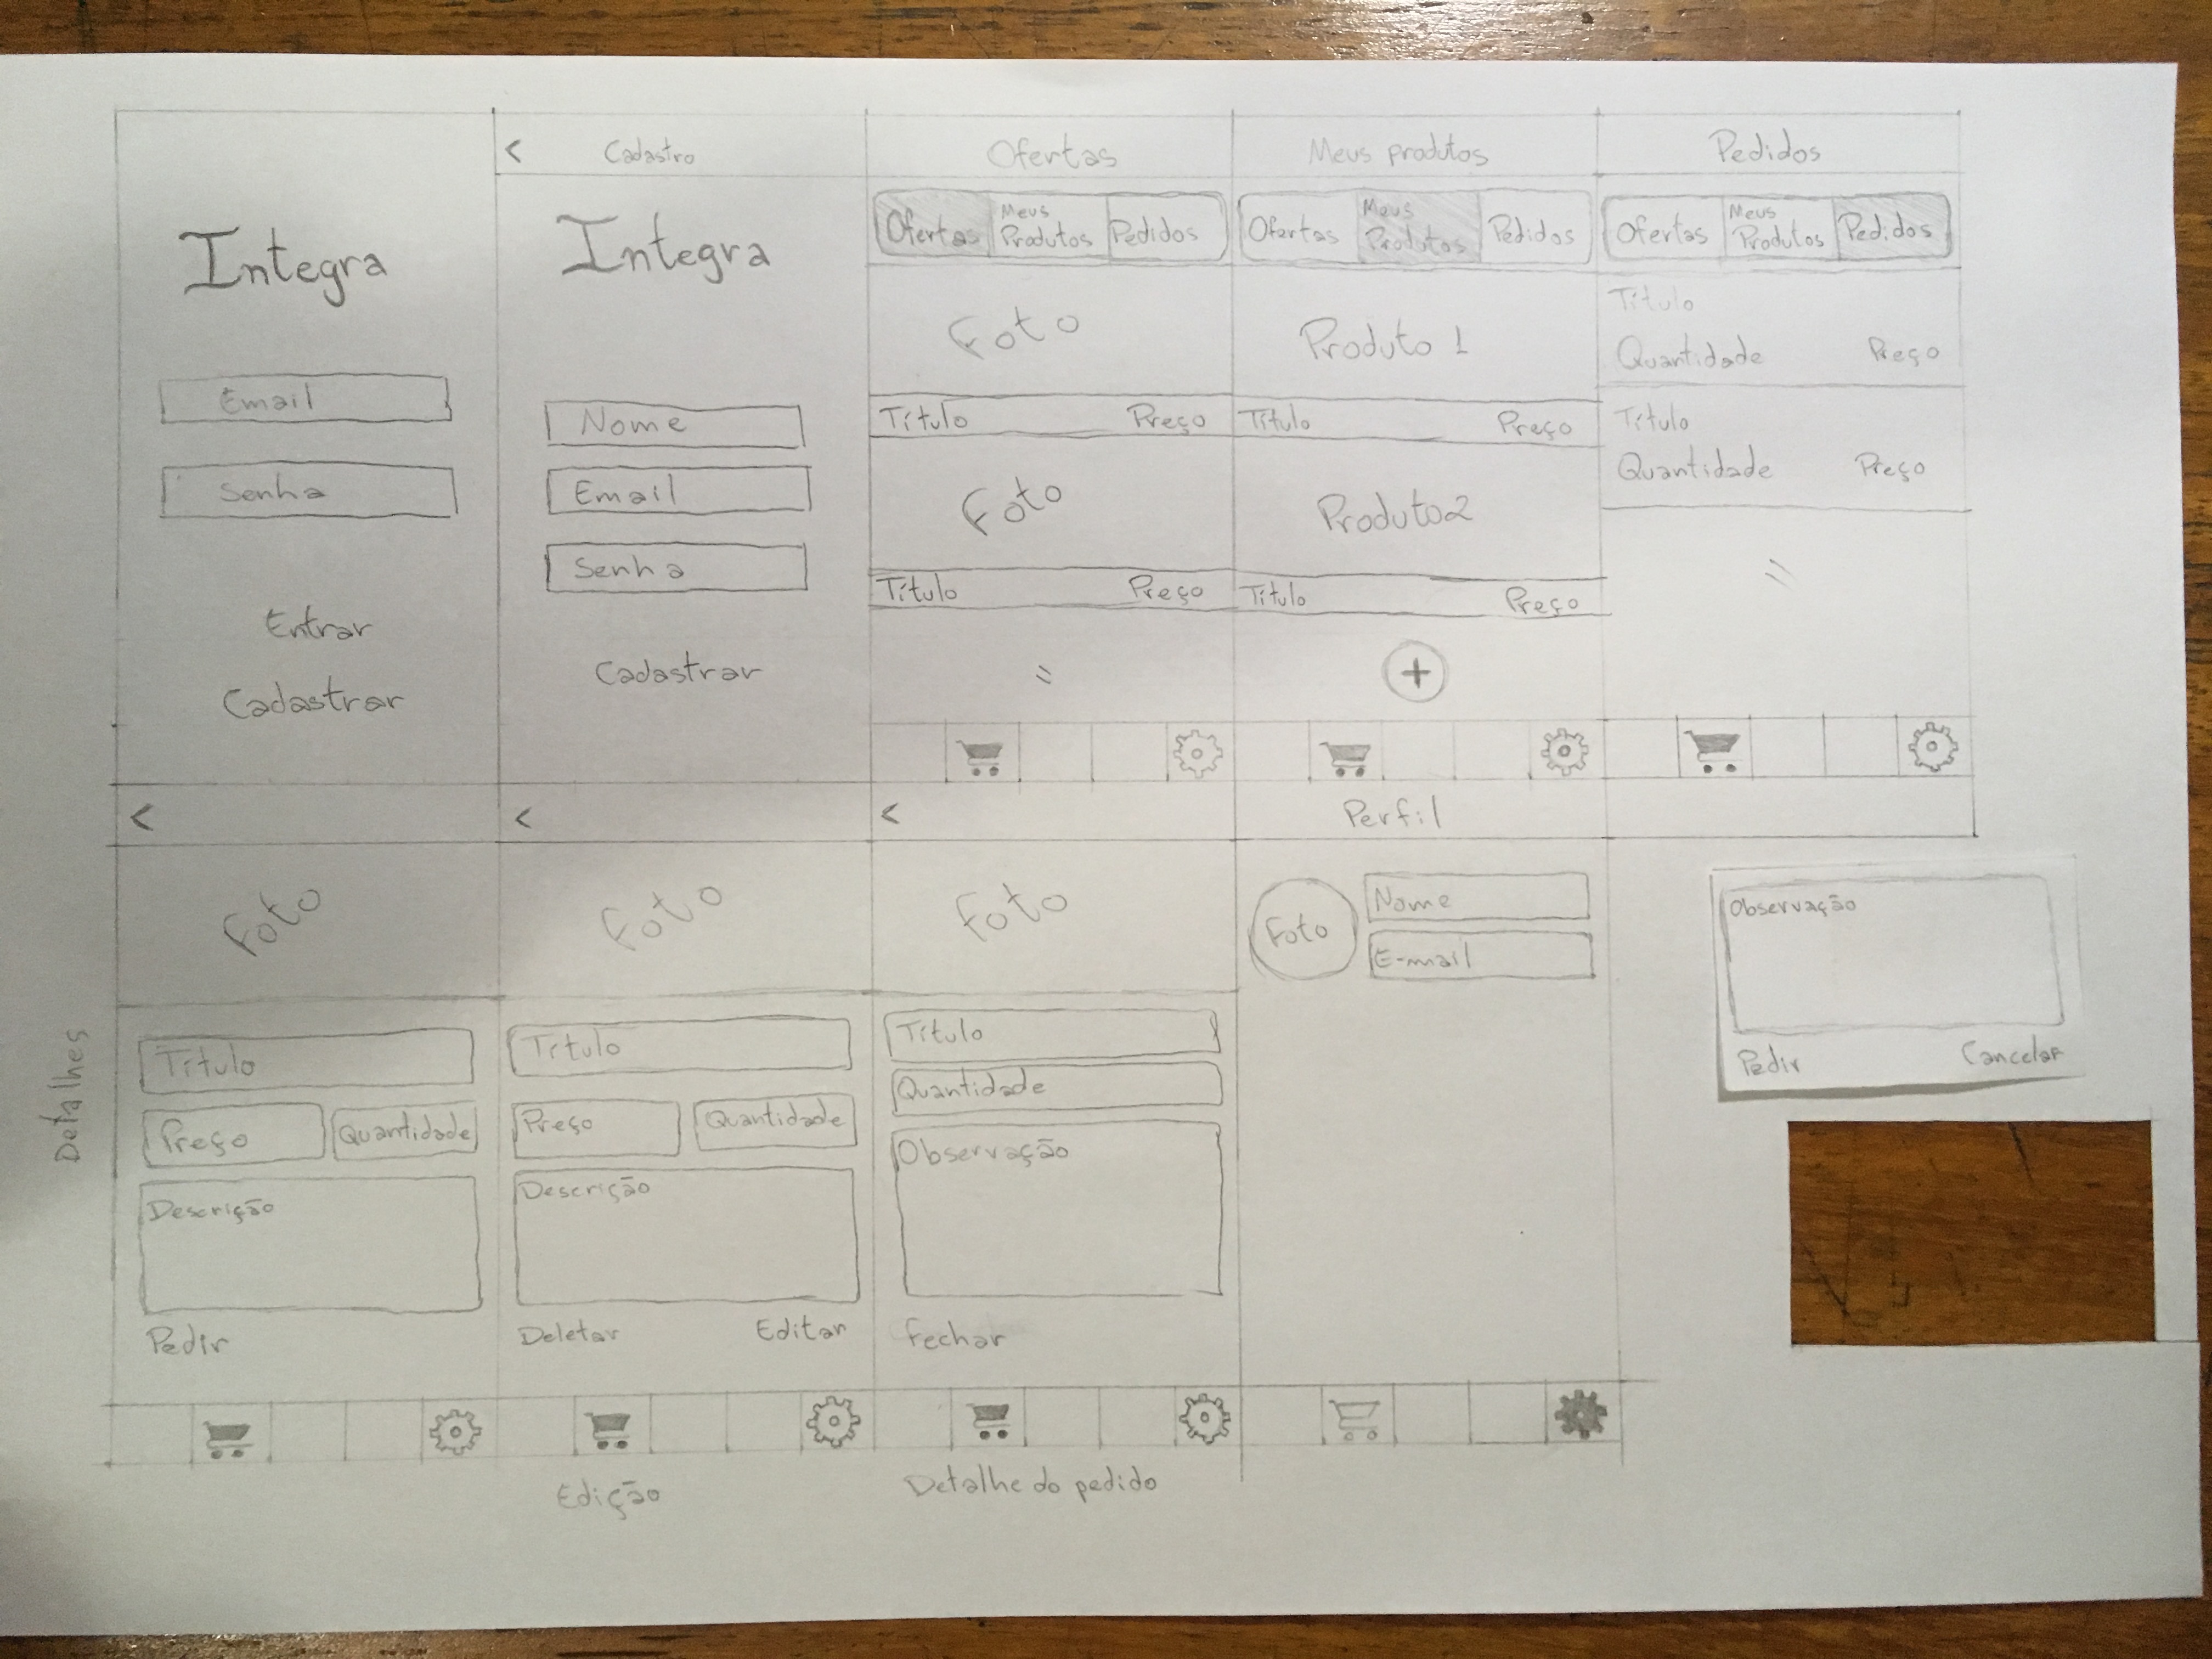 Integra
Email
Senha
Entrar
Cadastrar
< Cadastro
Integra
Nome
Email
Senha
Cadastrar
Ofertas
Ofertas
Meus
Produtos
Pedidos
Foto
Título Preço
Foto
Título Preço
Meus produtos
Ofertas
Meus
Produtos
Pedidos
Produto 1
Título Preço
Produto 2
Título Preço
+
Pedidos
Ofertas
Meus
Produtos
Pedidos
Título
Quantidade Preço
Título
Quantidade Preço
Detalhes
<
Foto
Título
Preço Quantidade
Descrição
Pedir
<
Foto
Título
Preço Quantidade
Descrição
Deletar Editar
Edição
<
Foto
Título
Quantidade
Observação
Fechar
Detalhe do pedido
Perfil
Foto
Nome
E-mail
Observação
Pedir Cancelar